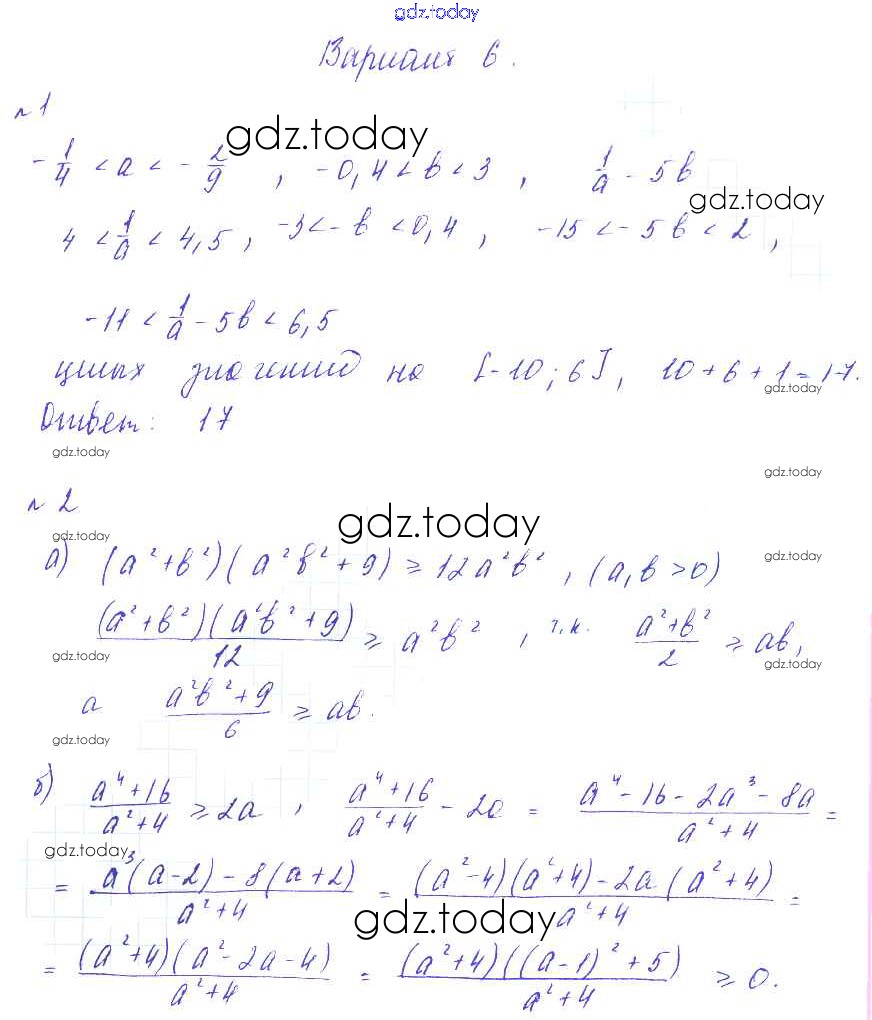 gdz.today
Вариант 6.
№1
-1/4 < a < -2/9 , -0,4 < b < 3 , 1/a - 5b
gdz.today
gdz.today
4 < 1/a < 4,5 , -3 < -b < 0,4 , -15 < -5b < 2 ,
-11 < 1/a - 5b < 6,5
целых значений на [-10; 6], 10 + 6 + 1 = 17.
gdz.today
Ответ: 17
gdz.today
gdz.today
№2
gdz.today
gdz.today
gdz.today
а) (a² + b²)(a²b² + 9) ≥ 12a²b² , (a, b > 0)
(a² + b²)(a²b² + 9)/12 ≥ a²b² , т.к. (a² + b²)/2 ≥ ab,
gdz.today
gdz.today
а (a²b² + 9)/6 ≥ ab.
gdz.today
б) (a⁴ + 16)/(a² + 4) ≥ 2a , (a⁴ + 16)/(a² + 4) - 2a = (a⁴ - 16 - 2a³ - 8a)/(a² + 4) =
gdz.today
= (a³(a - 2) - 8(a + 2))/(a² + 4) = ((a² - 4)(a² + 4) - 2a(a² + 4))/(a² + 4) =
gdz.today
= (a² + 4)(a² - 2a - 4)/(a² + 4) = (a² + 4)((a - 1)² + 5)/(a² + 4) ≥ 0.